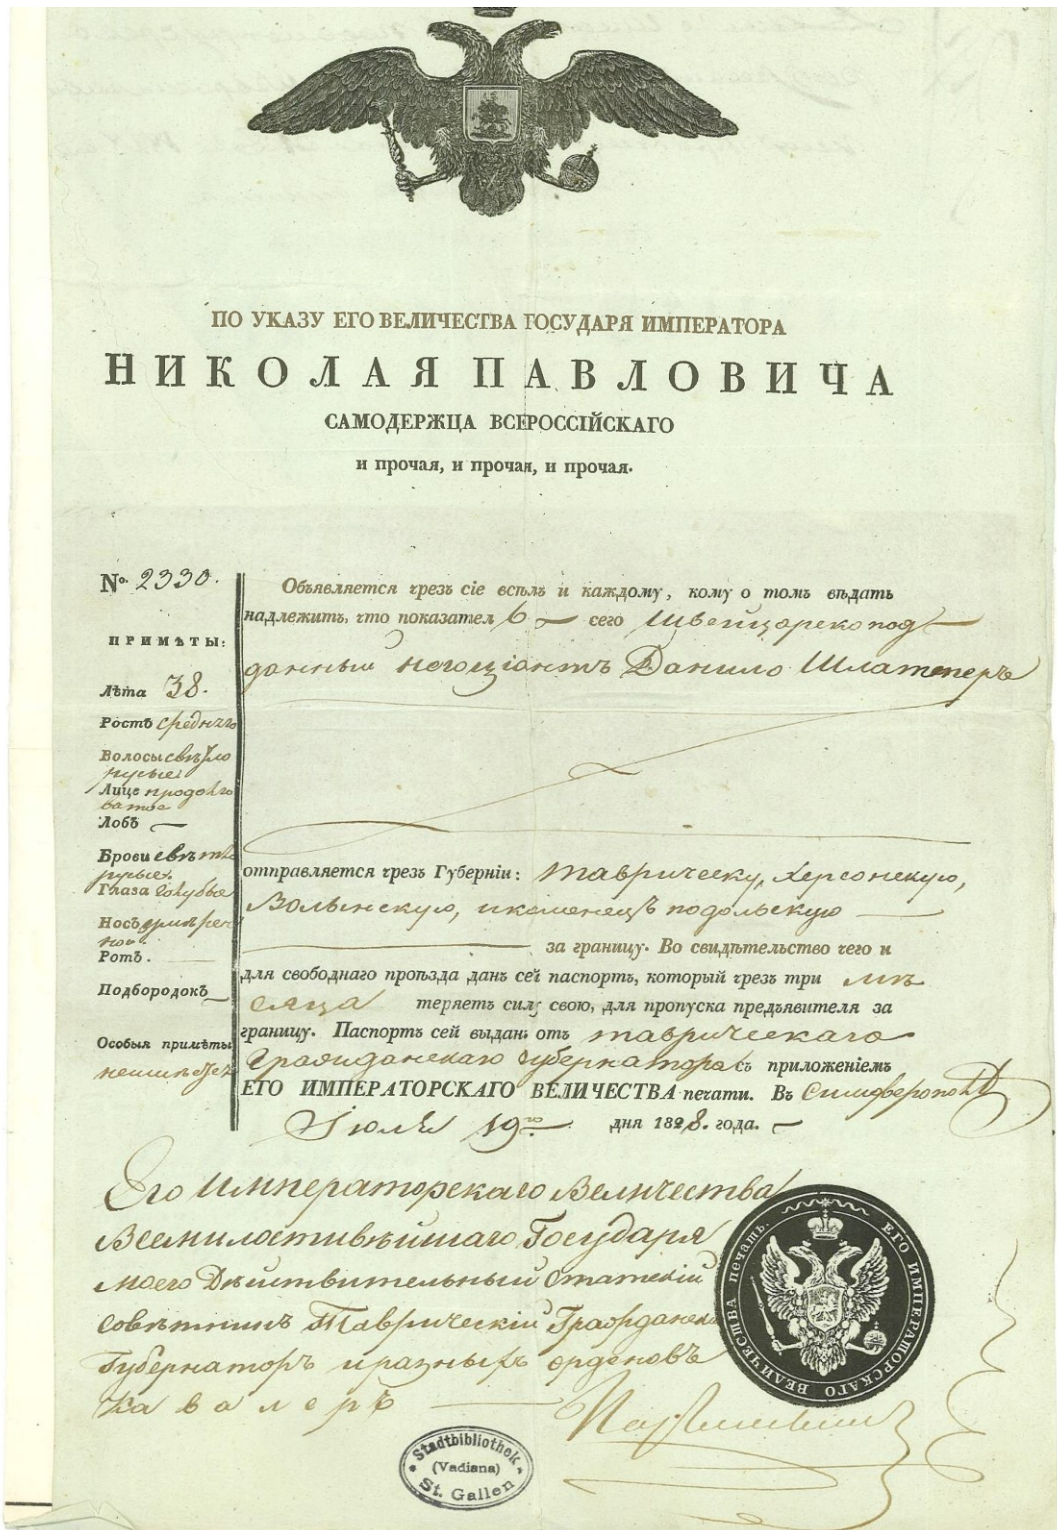 ПО УКАЗУ ЕГО ВЕЛИЧЕСТВА ГОСУДАРЯ ИМПЕРАТОРА
НИКОЛАЯ ПАВЛОВИЧА
САМОДЕРЖЦА ВСЕРОССІЙСКАГО
и прочая, и прочая, и прочая.
№ 2330.
ПРИМѢТЫ:
Лѣта 38.
Ростъ средняго
Волосы свѣтло
русые
Лице продолго
ватое
Лобъ —
Брови свѣтло
русые.
Глаза голубые
Носъ
Ротъ. —
Подбородокъ —
Особыя примѣты
неимѣетъ
Объявляется чрезъ сіе всѣмъ и каждому, кому о томъ вѣдать
надлежитъ, что показатель — сего Швейцарско под
данный негоціантъ Данило Шлатеперъ
отправляется чрезъ Губерніи: Таврическу, Херсонскую,
Волынскую, и каменецъ подольскую —
— за границу. Во свидѣтельство чего и
для свободнаго проѣзда данъ сей паспортъ, который чрезъ три мѣ
сяца теряетъ силу свою, для пропуска предъявителя за
границу. Паспортъ сей выданъ отъ таврическаго
Гражданскаго губернатора съ приложеніемъ
ЕГО ИМПЕРАТОРСКАГО ВЕЛИЧЕСТВА печати. Въ Симферополѣ
Іюля 19го дня 1828. года. —
Его Императорскаго Величества
Всемилостивѣйшаго Государя
моего Дѣйствительный Статскій
совѣтникъ Таврическій Гражданскій
Губернаторъ и разныхъ орденовъ
Кавалеръ —
ЕГО ИМПЕРАТОРСКАГО ВЕЛИЧЕСТВА печать.
Stadtbibliothek
(Vadiana)
St. Gallen